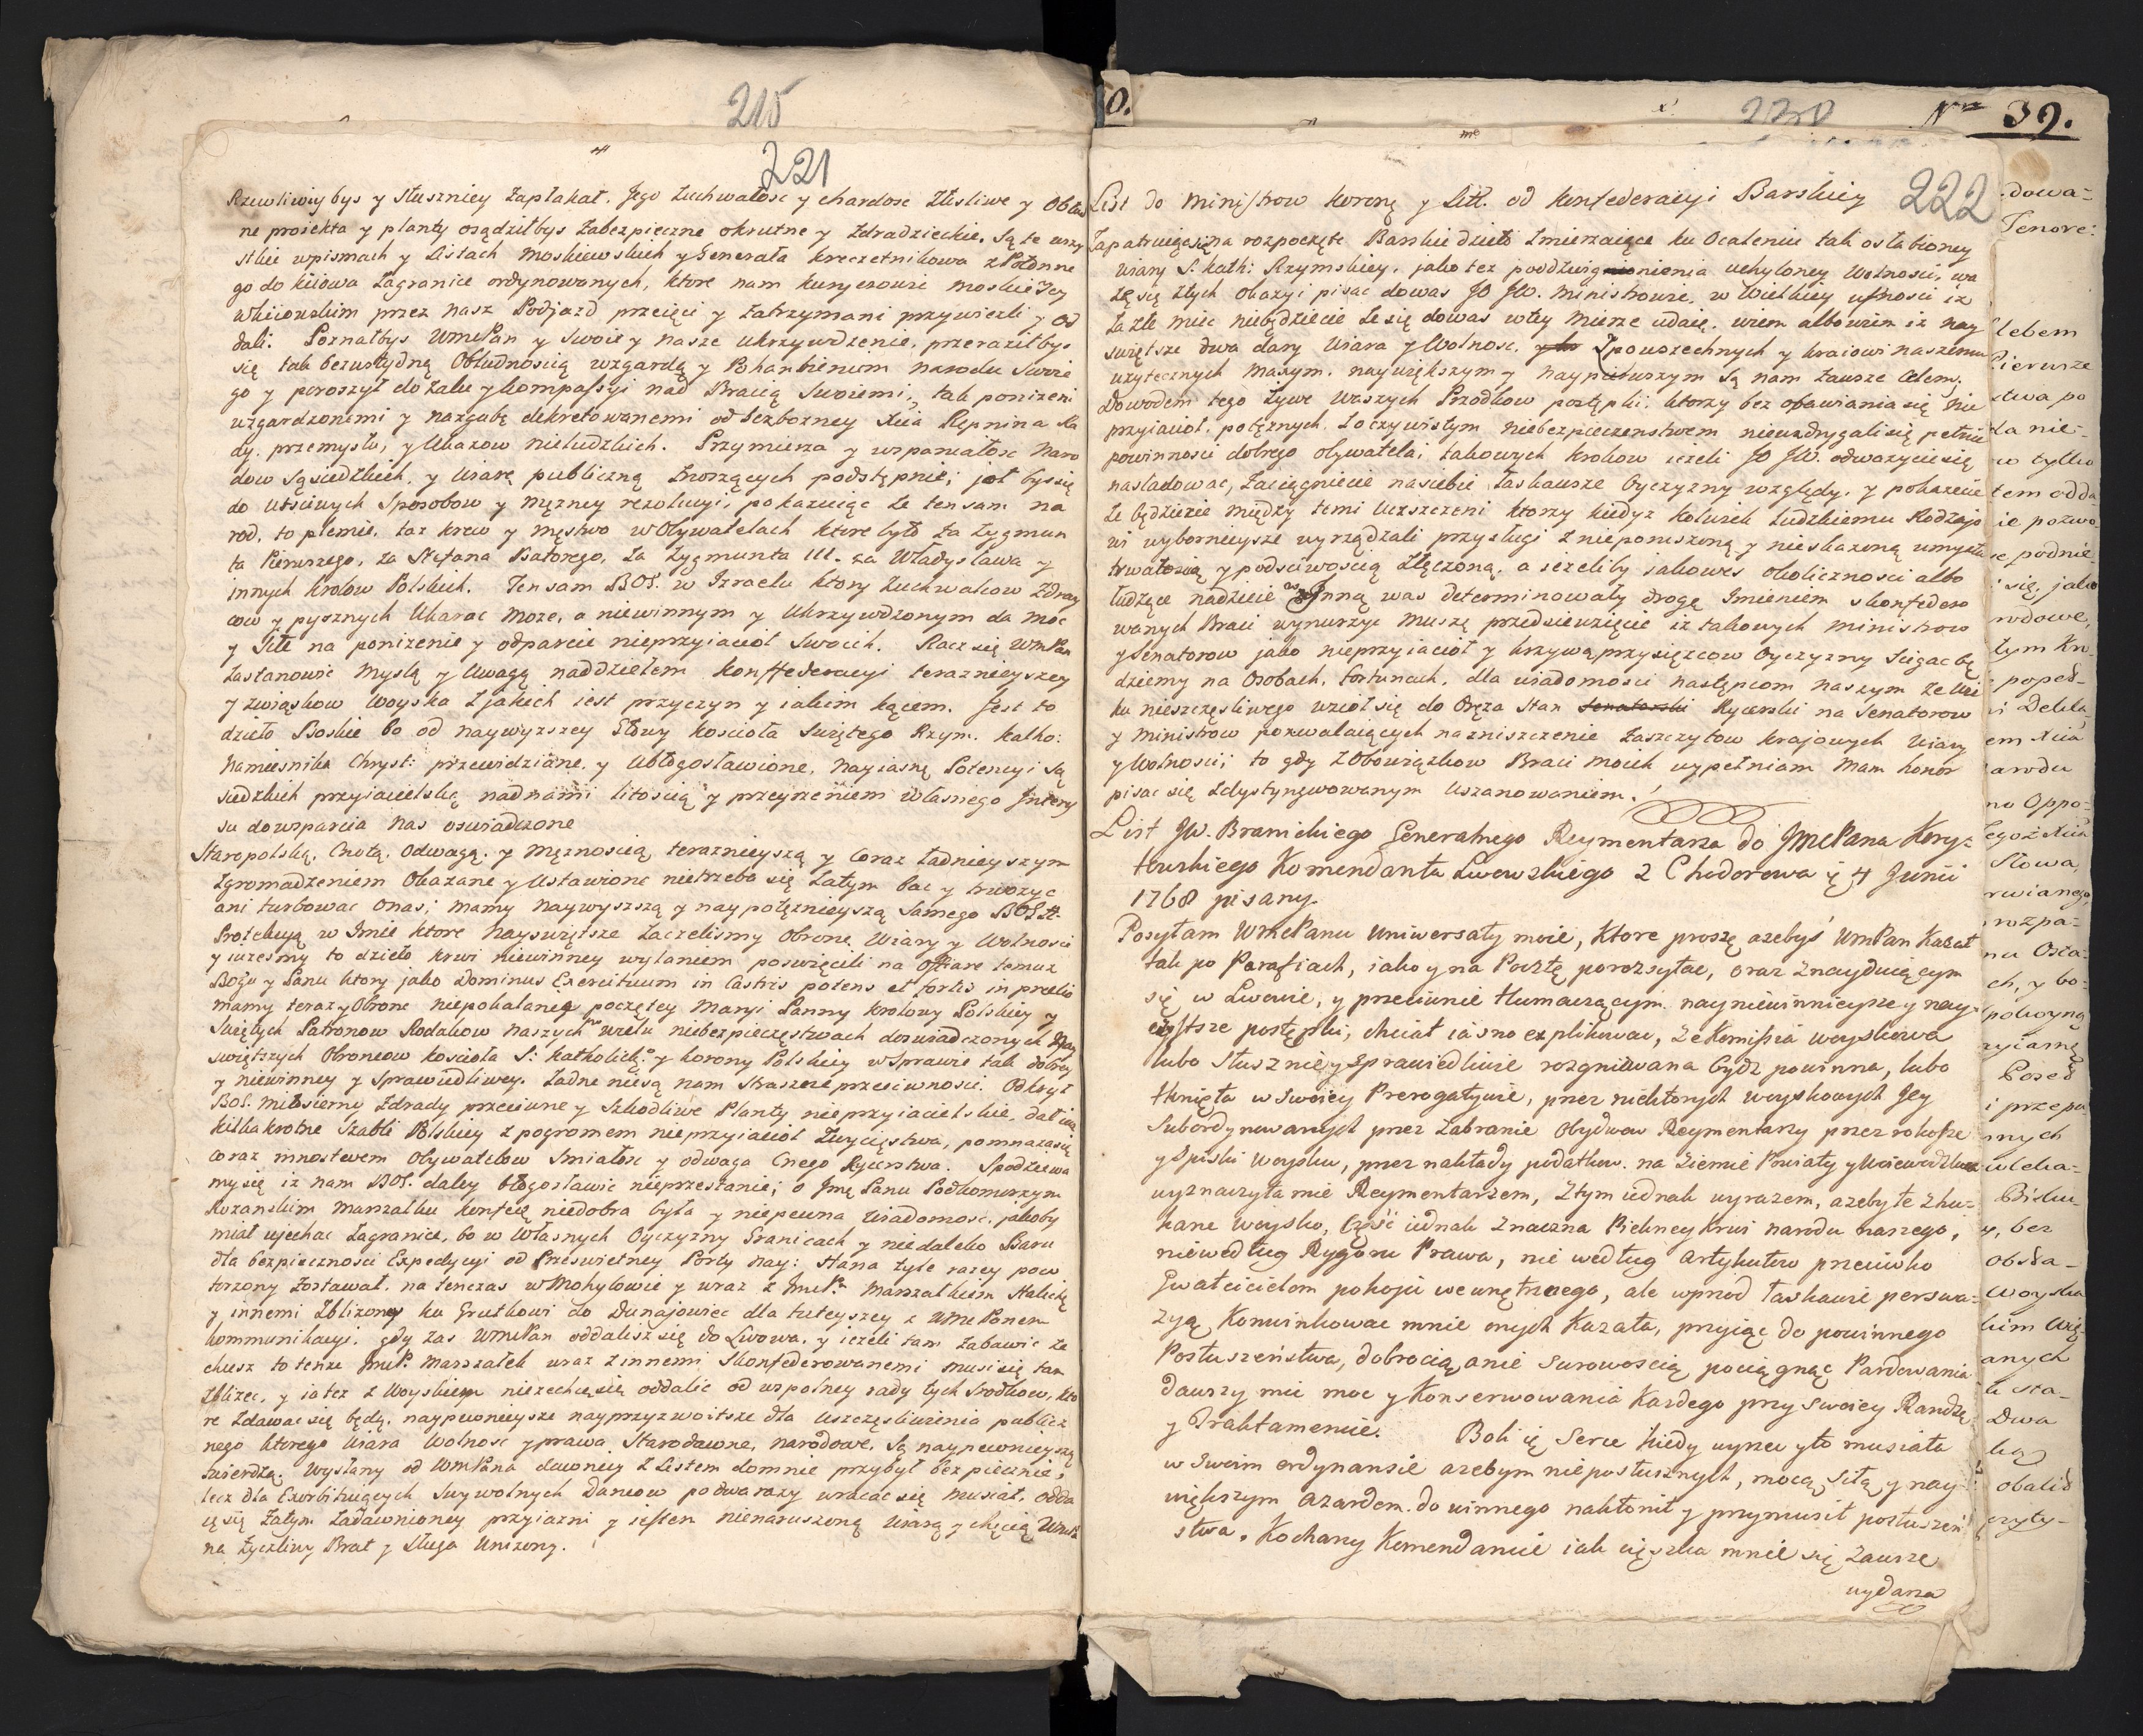 215
221
Rzewliwiey bys y słuszniey zapłakał. Jego zuchwałosc y chardosc złosliwe y Obłud
ne projekta y planty osądziłbys zabezpieczne okrutne y zdradzieckie. Są te wszy
stkie w pismach y Listach Moskiewskich y Generała Kreczetnikowa z Połonne
go do Kiiowa zagranice ordynowanych, ktore nam kuryerowie Moskiewscy
w Kiiowskim przez nasz Podjazd przeięci y zatrzymani przywiezli y od
dali. Poznałbys WmcPan y swoie y nasze ukrzywdzenie, przeraziłbys
się tak bezwstydną Obłudnoscią wzgardą y Pohanbieniem narodu swoie
go y poroszył do żalu y kompassyi nad Bracią swoiemi, tak ponizeni
wzgardzonemi y nazgubę dekretowanemi od bezbozney Xcia Repnina Ra
dy, przemysłu, y Ukazow nieludzkich. Przymierza y wspaniałosc Naro
dow Sąsiedzkich, y wiarę publiczną tworzących podstępnie; jął bys się
do utsciwych sposobow y męzney rezolucyi, pokazuiąc ze ten sam na
rod, to plemie, taz krew y męstwo w Obywatelach ktore było za Zygmun
ta Pierwszego, za Stefana Batorego, za Zygmunta III. za Władysława y
innych Krolow Polskich. Ten sam BOG w Izraelu ktory zuchwalcow Zdray
cow y pysznych Ukarac moze, a niewinnym y Ukrzywdzonym da moc
y siłe na ponizenie y odparcie nieprzyiacioł swoich. Racz się WmPan
zastanowic myslą y Uwagą nad dziełem Konffederacyi terazniejszey
y związkow woyska z jakich iest przyczyn y iakim kącem. Jest to
dzieło Boskie bo od naywyzszey Głowy Kosciola swiętego Rzym. Katho:
Namiesnika Chryst: przewidziane, y Ubłogosławione, nayiasnę Potencyi Są
siedzkich przyiacielską nadnami litoscią y przeyrzeniem własnego Intere
su do wsparcia nas oswiadczone
Staropolską, Cnotą, Odwagą, y męznoscią terazniejszą y coraz ładnieyszym
zgromadzeniem Okazane y Ustawione nietrzeba się zatym bac y trwozyc
ani turbowac onas; mamy naywyszszą y naypotęznieyszą samego BOGA
Protekcyą w Imie ktore nayswiętsze zaczelismy Obronę Wiary y Wolnosci
y wzesmy to dzieło krwi niewinney wylaniem poswięcili na Offiare temuz
Bogu y Panu ktory jako Dominus Exercituum in Castris potens et fortis in prælio
mamy teraz y Obrone niepokalaney poczętey Maryi Panny krolowy Polskiey y
swiętych Patronow Rodakow naszych w wielu niebezpieczęstwach doswiadczonych Nay
swiętszych Obroncow Kosciola S: Katholick: y korony Polskiey w sprawie tak dobrey
y niewinney y sprawiedliwey. Żadne niesą nam straszne przeciwnosci. Odkrył
BOG miłosierny zdrady przeciwne y szkodliwe Planty nieprzyiacielskie, dał iuz
kilkakrotne Szabli Polskiey z pogromem nieprzyiacioł zwycięstwa, pomnaza się
coraz mnostwem Obywatelow smiałosc y odwaga Cnego Rycerstwa. Spodziewa
my się iz nam BOG. daley błogosławic nieprzestanie; o Jmę Panu Podkomorzym
Rozanskim Marszałku Konfed niedobra była y niepewna wiadomosc, jakoby
miał ujechac zagranice, bo w własnych Oyczyzny Granicach y niedaleko Baru
dla bezpiecznosci Expedycyi od Prześwietney Porty nay: Hana tyle razey pow
torzony zostawał, na tenczas w Mohylowie y wraz z JmcP. Marszałkiem Halickę
y innemi zblizony ku Grutkowi do Dunajowiec dla tuteyszey z WmcPanem
kommunikacyi, gdy zas WmcPan oddalisz się do Lwowa, y iezeli tam zabawic ze
chcesz to tenze JmcP. Marszałek wraz z innemi Skonfederowanemi musi się tam
zblizec, y iatez z woyskiem niezechcę się oddalic od wspolney rady tych srodkow, kto
re zdawac się będą, naypewnieysze nayprzyzwoitsze dla uszczęsliwienia publicz
nego ktorego Wiara Wolnosc y prawa Starodawne, narodowe, są naypewnieyszą
twierdzą. Wysłany od WmPana dawoney z Listem domnie przybył bezpiecznie;
lecz dla Exorbituących swywolnych Dancow podwa razy wracac się musiał, odda
ię się zatym zadawnioney przyiazni y iestem nienaruszoną wiarą y chęcią WmcP
na Zyczliwy Brat y Sługa Unizony.
0.
220
Nro 39.
222
List do Ministrow Koronę y Litt. od Konfederacyi Barskiey
Zapatruiącsię na rozpoczęte Barskie dzieło zmierzaiące ku Ocaleniu tak osłabioney
wiary S. Kath: Rzymskiey, jako tez podzwignienia uchyloney Wolnosci, wa
zę się złych okazyi pisac dowas JO JW. Ministrowie, w Wielkiey ufnosci iz
za złe miec niebędziecie ze się dowas w tey mierze udaię, wiem albowiem iz nay
swiętsze dwa dary Wiara y Wolnosc, z powszechnych y kraiowi naszemu
uzytecznych maxym, naywiększym y naypierwszym są nam zawsze celem,
Dowodem tego zywe Waszych Przodkow postępki, ktorzy bez obawiania się nie
przyiacioł, potęznych, z oczywistym niebezpieczenstwem niewzdrygali się pełnic
powinnosci dobrego obywatela; takowych krokow iezeli JO JW. odwazycie się
nasladowac, zaciągniecie nasiebie łaskawsze Oyczyzny względy, y pokazecie
ze będziecie między temi Uczszczeni ktorzy kiedyz kolwiek ludzkiemu Rodzajo
wi wyborneysze wyrządzali przysługi z nieporuszoną y nieskazoną umysłu
trwałoscią y podsciwoscią złączoną, a iezeliby iakowes okolicznosci albo
łudzące nadzieie inną was determinowały drogę Imieniem skonfedero
wanych Braci wynurzyc muszę przedsiewzięcie iz takowych Ministrow
y Senatorow jako nieprzyiacioł y krzywoprzysięzcow Oyczyzny scigac bę
dziemy na Osobach, fortunach, dla wiadomosci następcom naszym ze Wie
ku nieszczęsliwego wziął się do Oręza Stan Senatorski Rycerski na Senatorow
y Ministrow pozwalaiących na zniszczenie zaszczytow krajowych Wiary
y Wolnosci; to gdy z Obowiązkow Braci Moich wypełniam mam honor
pisac się zdystyngwowanym Uszanowaniem.
List JW. Branickiego Generalnego Reymentarza do JmcPana Kory-
towskiego Komendanta Lwowskiego z Chodorowa d. 4 Junii
1768 pisany.
Posyłam WmcPanu Uniwersały moie, ktore proszę azebyś WmPan kazał
tak po Parafiach, iako y na Pocztę porozsyłac, oraz znayduiącym
się w Lwowie, y przeciwnie tłumaczącym nayniewinnieysze y nay-
czystsze postępki, chciał iasno explikowac, ze Komissia woyskowa
lubo słusznie y sprawiedliwie rozgniewana bydz powinna, lubo
tknięta w swoiey Prerogatywie, przez niektorych woyskowych Jey
Subordynowanych przez zabranie obydwow Reymentarzy przez rokosze
y Spiski woysku, przez nakłady podatkow. na Ziemie Powiaty y Woiewodztwa
wyznaczyła mie Reymentarzem, z tym iednak wyrazem, azeby te zhu-
kane woysko, część iednak znaczna Piekney krwi narodu naszego,
nie według Rygoru Prawa, nie według Artykułow przeciwko
Gwałcicielom pokoju wewnętrznego, ale wprzod łaskawie perswa-
zyą Konwinkowac mnie onych kazała, przyiąc do powinnego
Posłuszeństwa, dobrocią anie surowoscią pociągnąc Pardowania
dawszy mie moc y konserwowania kazdego przy swoiey Randze
y Traktamencie. Boli ię Serce kiedy wyrzec y to musiała
w swoim ordynansie azebym nieposłusznych, mocą, siłą y nay-
większym azardem do winnego nakłonił y przymusił posłuszeń
stwa. Kochany Komendancie iak cięszka mnie się zawsze
wydarza
dowa-
Tenore:
lebem
Pierwsze
stwa po
la nie-
o tylko
tem odda
ie pozwo
podnie
się, jako
rodowe,
tym Kro-
poped-
i Dekla
em Xcia
arodu
no Oppo-
Tegoż Xcia
Słowa,
rwianego
rozpa-
nu Osta-
ch, y bo-
pokoyną
zyiamę
Pozed
i przepa
nych
wleka-
Bisku-
y, bez
Obsta-
Woyska
kim Wię-
anych
te sta-
Dwa
ką
obalid
czyty-